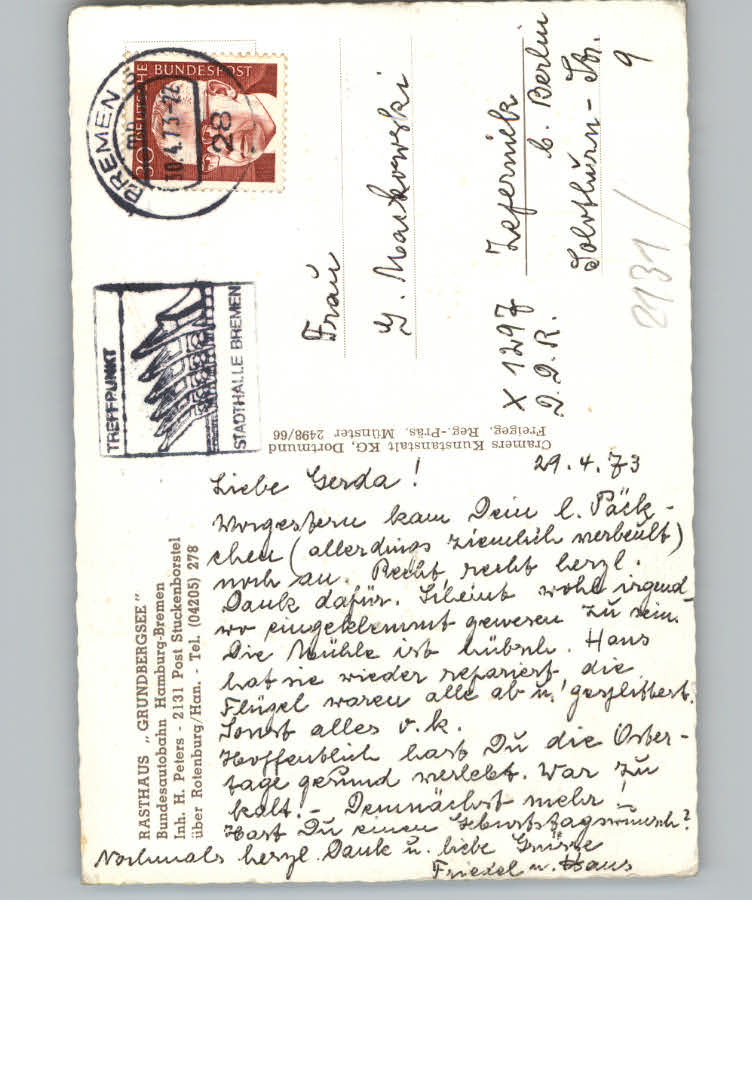 RASTHAUS „GRUNDBERGSEE"
Bundesautobahn Hamburg-Bremen
Inh. H. Peters - 2131 Post Stuckenborstel
über Rotenburg/Han. - Tel. (04205) 278
29.4.73
Liebe Gerda!
Vorgestern kam Dein l. Päck-
chen (allerdings ziemlich verbeult)
noch an. Recht, recht herzl.
Dank dafür. Scheint wohl irgend-
wo eingeklemmt gewesen zu sein.
Die Mühle ist hübsch. Hans
hat sie wieder repariert, die
Flügel waren alle ab u. gesplittert.
Sonst alles o.k.
Hoffentlich hast Du die Oster-
tage gesund verlebt. War zu
kalt. - Demnächst mehr!
Hast Du einen Geburtstagswunsch?
Nochmals herzl. Dank u. liebe Grüsse
Friedel u. Hans
Cramers Kunstanstalt KG, Dortmund
Freigeg. Reg.-Präs. Münster 2498/66
TREFFPUNKT
STADTHALLE BREMEN
BREMEN
30.4.73-22
28
DEUTSCHE BUNDESPOST
30
Frau
G. Markowski
X 1297 Zepernick
D.D.R. b. Berlin
Solothurn-Str.
9
2131/